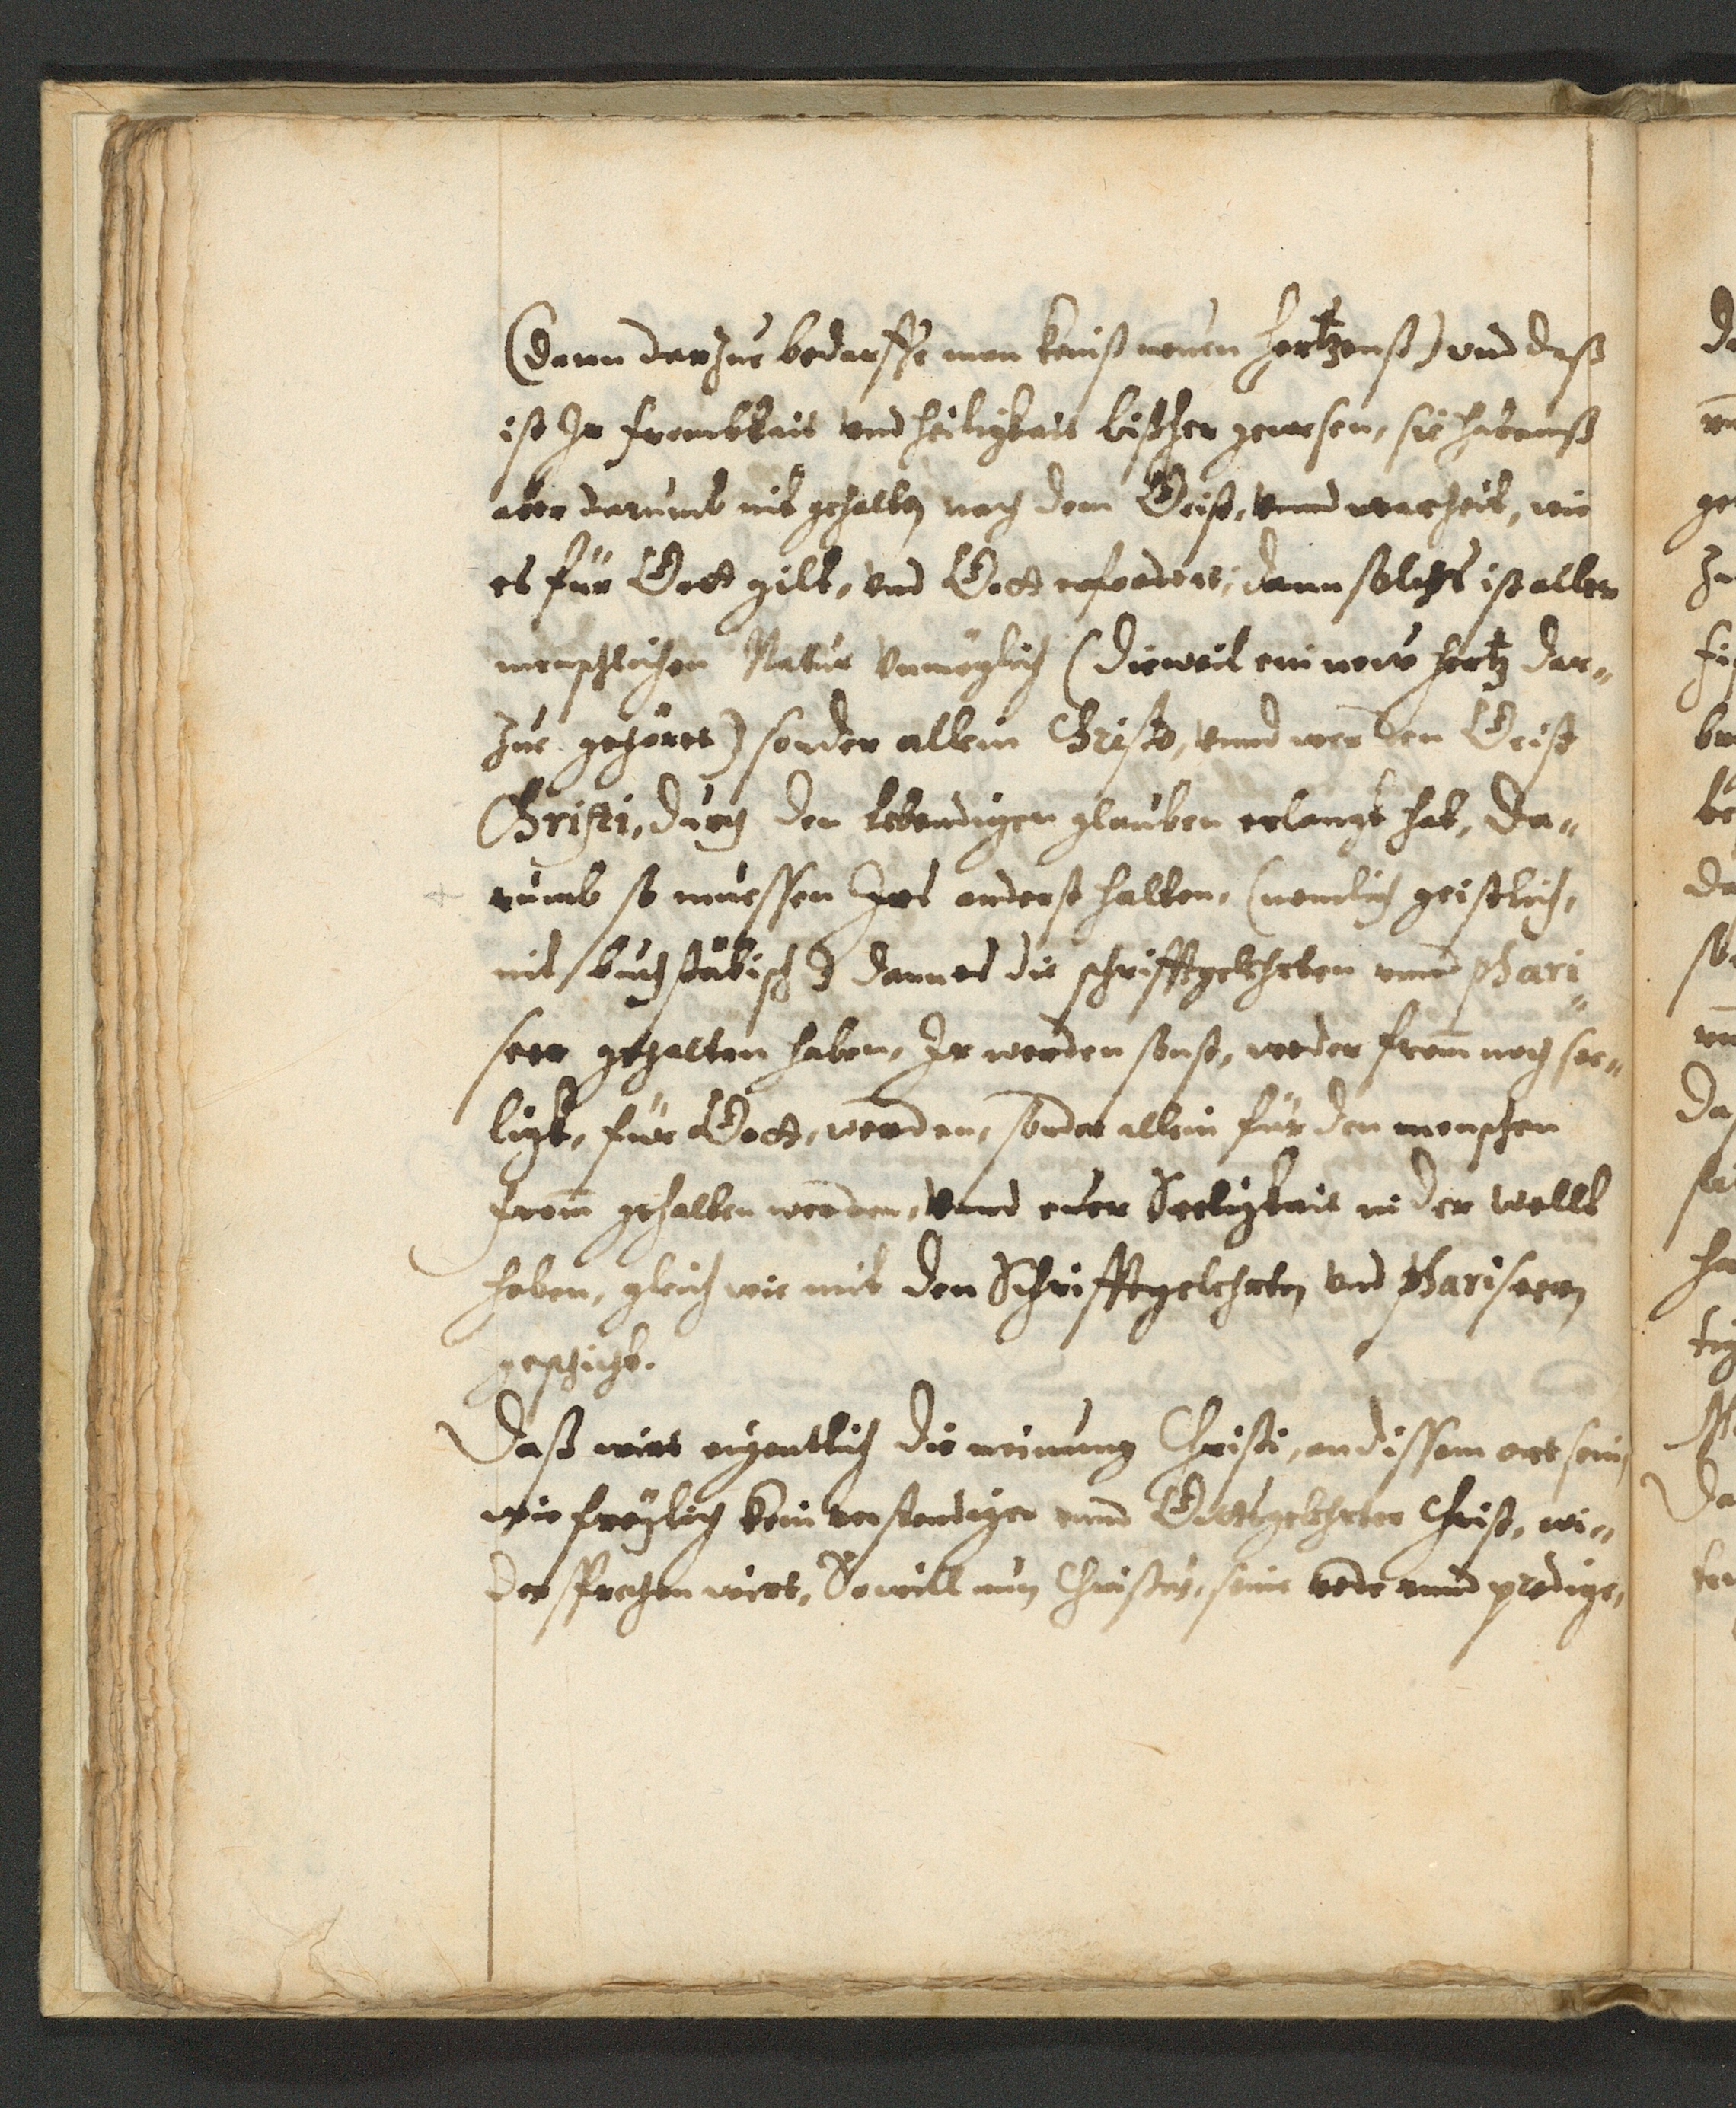 (dann darzue bedarffe man keinß neuen hertzenß) vnd daß
ist Ir frombkait vnd heiligkait bißher gewesen, sie habenß
aber darumb nit gehalten nach dem Geist, vnnd warheit, wie
es für Gott gilt, vnd Gott erfordert, dann solches ist aller
menschlichen Natur vnmöglich (dieweil ein new hertz dar„
zue gehöret) sonder allein Christo, vnnd wer den Geist
Christi, durch den lebendigen glauben erlangt hat, da„
rumb so muessen Irs anderst halten, (nemlich geistlich,
nit buchstäbisch) dann es die schrifftgelehrten vnnd phari„
seer gehalten haben, Ir werden sonst, weder from̄ noch see„
ligk, für Gott, werden, sonder allein für den menschen
from̄ gehalten werden, vnnd euer Seeligkait in der wellt
haben, gleich wie mit den Schrifftgelehrten vnd phariseern
geschicht.
Daß wirt eigentlich die meinung Christi, an dissem ort sein,
wie fröhlich kein verstendiger vnnd Gottsgelehrter Christ, wi„
dersprechen wirt, So will nun Christus, seine rede vnnd predige,